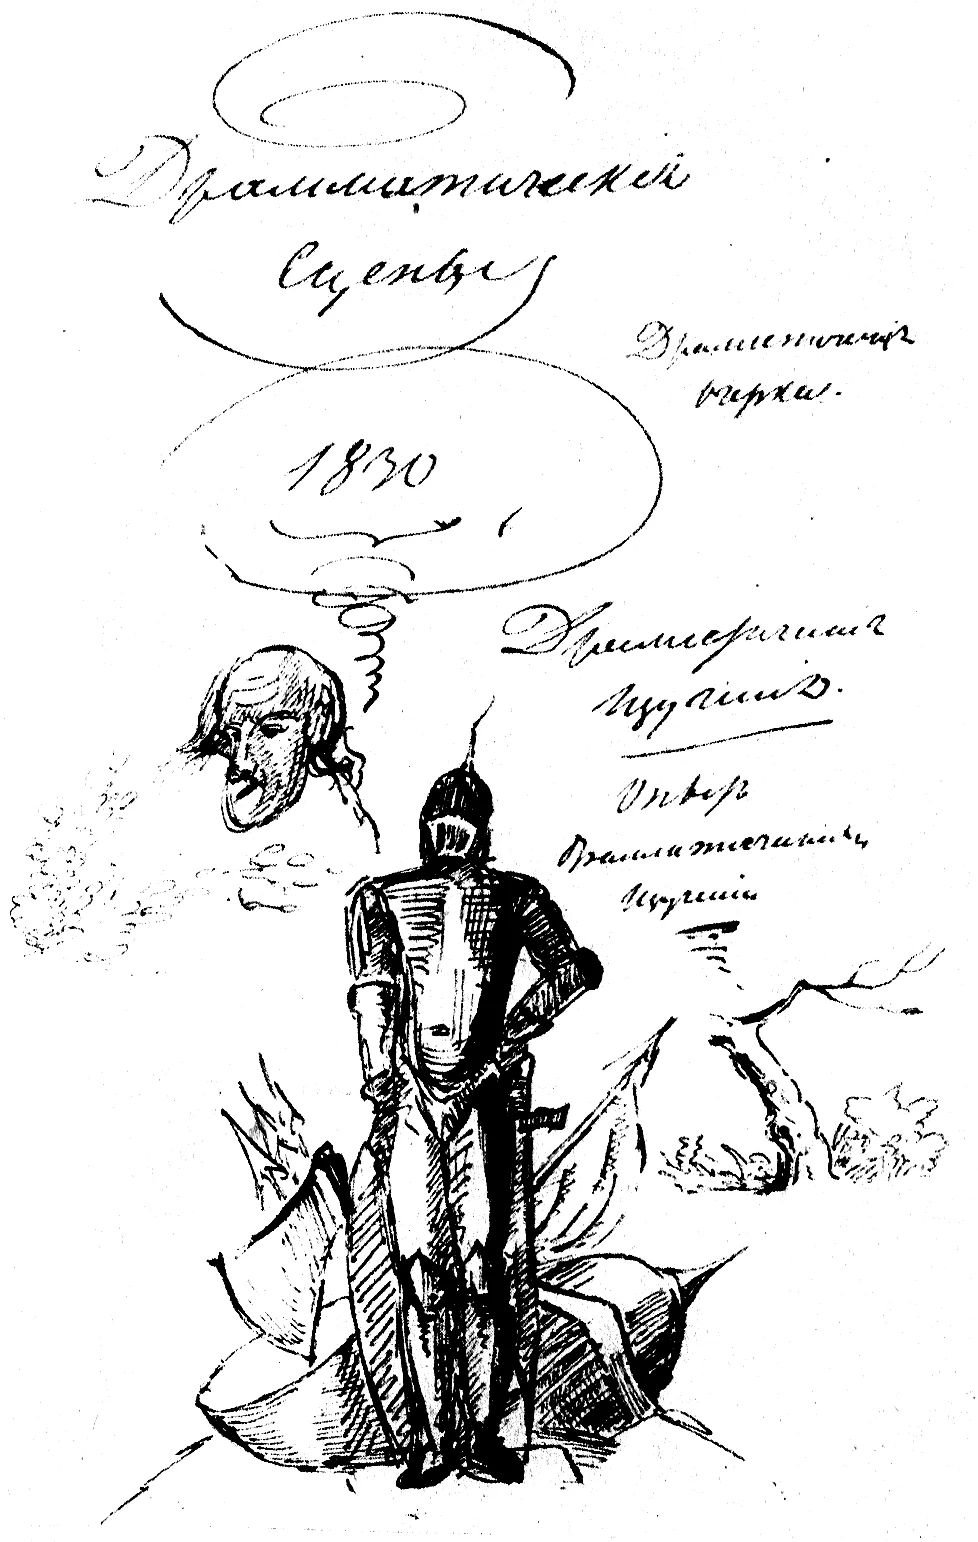 Драмматическія
Сцены
Драматическіе
очерки.
1830
Драматическія
изученія.
Опытъ
драмматическихъ
изученій